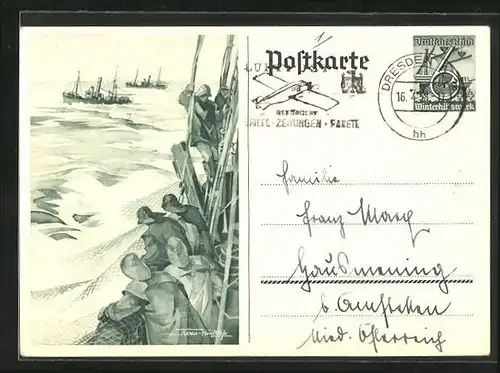 Postkarte
LUFTPOST
BEFÖRDERT
BRIEFE · ZEITUNGEN · PAKETE
DRESDEN
16.
hh
Deutsches Reich
Winterhilfswerk
Familie
Franz Marg
Hausmening
b. Amstetten
Nied. Österreich